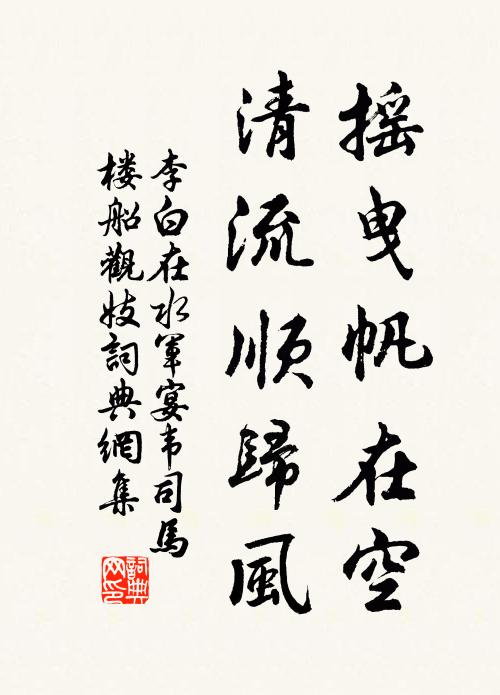 摇曳帆在空
清流顺歸風
李白在水軍宴韦司馬
楼船觀妓詞典網集
詞典
网印